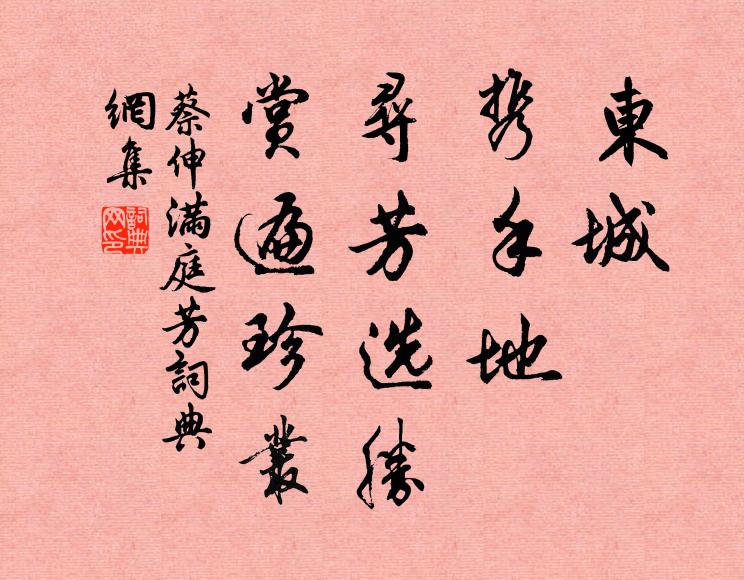 東城
携手地
尋芳选勝
賞遍珍叢
蔡伸滿庭芳詞典
網集
詞典網印